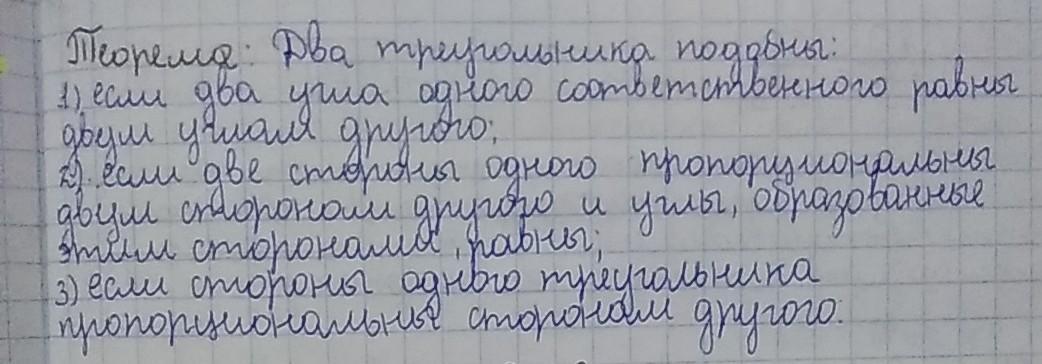 Теорема: Два треугольника подобны:
1) если два угла одного соответственного равны
двум углам другого;
2) если две стороны одного пропорциональны
двум сторонам другого и углы, образованные
этим сторонами, равны;
3) если стороны одного треугольника
пропорциональные сторонам другого.